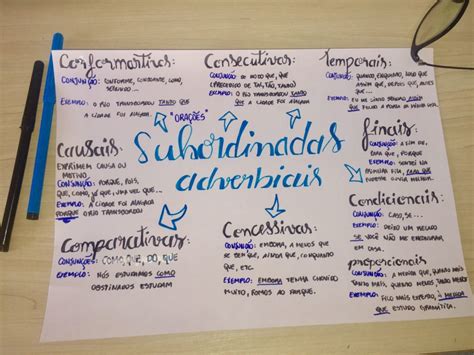 Conformativas:
CONJUNÇÃO: CONFORME, CONSOANTE, COMO,
SEGUNDO...
EXEMPLO: O RIO TRANSBORDOU TANTO QUE
A CIDADE FOI ALAGADA
Consecutivas:
CONJUNÇÃO: DE MODO QUE, QUE
(PRECEDIDO DE TAL, TÃO, TANTO)
EXEMPLO: O RIO TRANSBORDOU TANTO
QUE A CIDADE FOI ALAGADA
Temporais:
CONJUNÇÃO: QUANDO, ENQUANTO, LOGO QUE
ASSIM QUE, DEPOIS QUE, ANTES
QUE...
EXEMPLO: EU ME SINTO SEGURO
"ORAÇÕES"
Subordinadas
adverbiais
Causais:
EXPRIMEM CAUSA OU
MOTIVO
CONJUNÇÃO: PORQUE, POIS,
QUE, COMO, JÁ QUE, UMA VEZ QUE...
EXEMPLO: A CIDADE FOI ALAGADA
PORQUE O RIO TRANSBORDOU
finais:
CONJUNÇÃO: A FIM DE,
PARA QUE, QUE
EXEMPLO: SENTEI NA
PRIMEIRA FILA, PARA QUE
PUDESSE OUVIR MELHOR.
Comparativas:
CONJUNÇÕES: COMO, QUE, DO, QUE
EXEMPLO: NÓS ESTUDAMOS COMO
OBSTINADOS ESTUDAM
Concessivas:
CONJUNÇÃO: EMBORA, A MENOS QUE
SE BEM QUE, AINDA QUE, CONQUANTO
QUE, ETC.
EXEMPLO: EMBORA TENHA CHOVIDO
MUITO, FOMOS AO PARQUE.
Condicionais:
CONJUNÇÃO: CASO, SE...
EXEMPLO: DEIXO UM RECADO
SE VOCÊ NÃO ME ENCONTRAR
EM CASA.
proporcionais
CONJUNÇÃO: À MEDIDA QUE, QUANTO MAIS
TANTO MAIS, QUANTO MENOS, TANTO MENOS
EXEMPLO: FICO MAIS ESPERTO, À MEDIDA
QUE ESTUDO GRAMÁTICA.